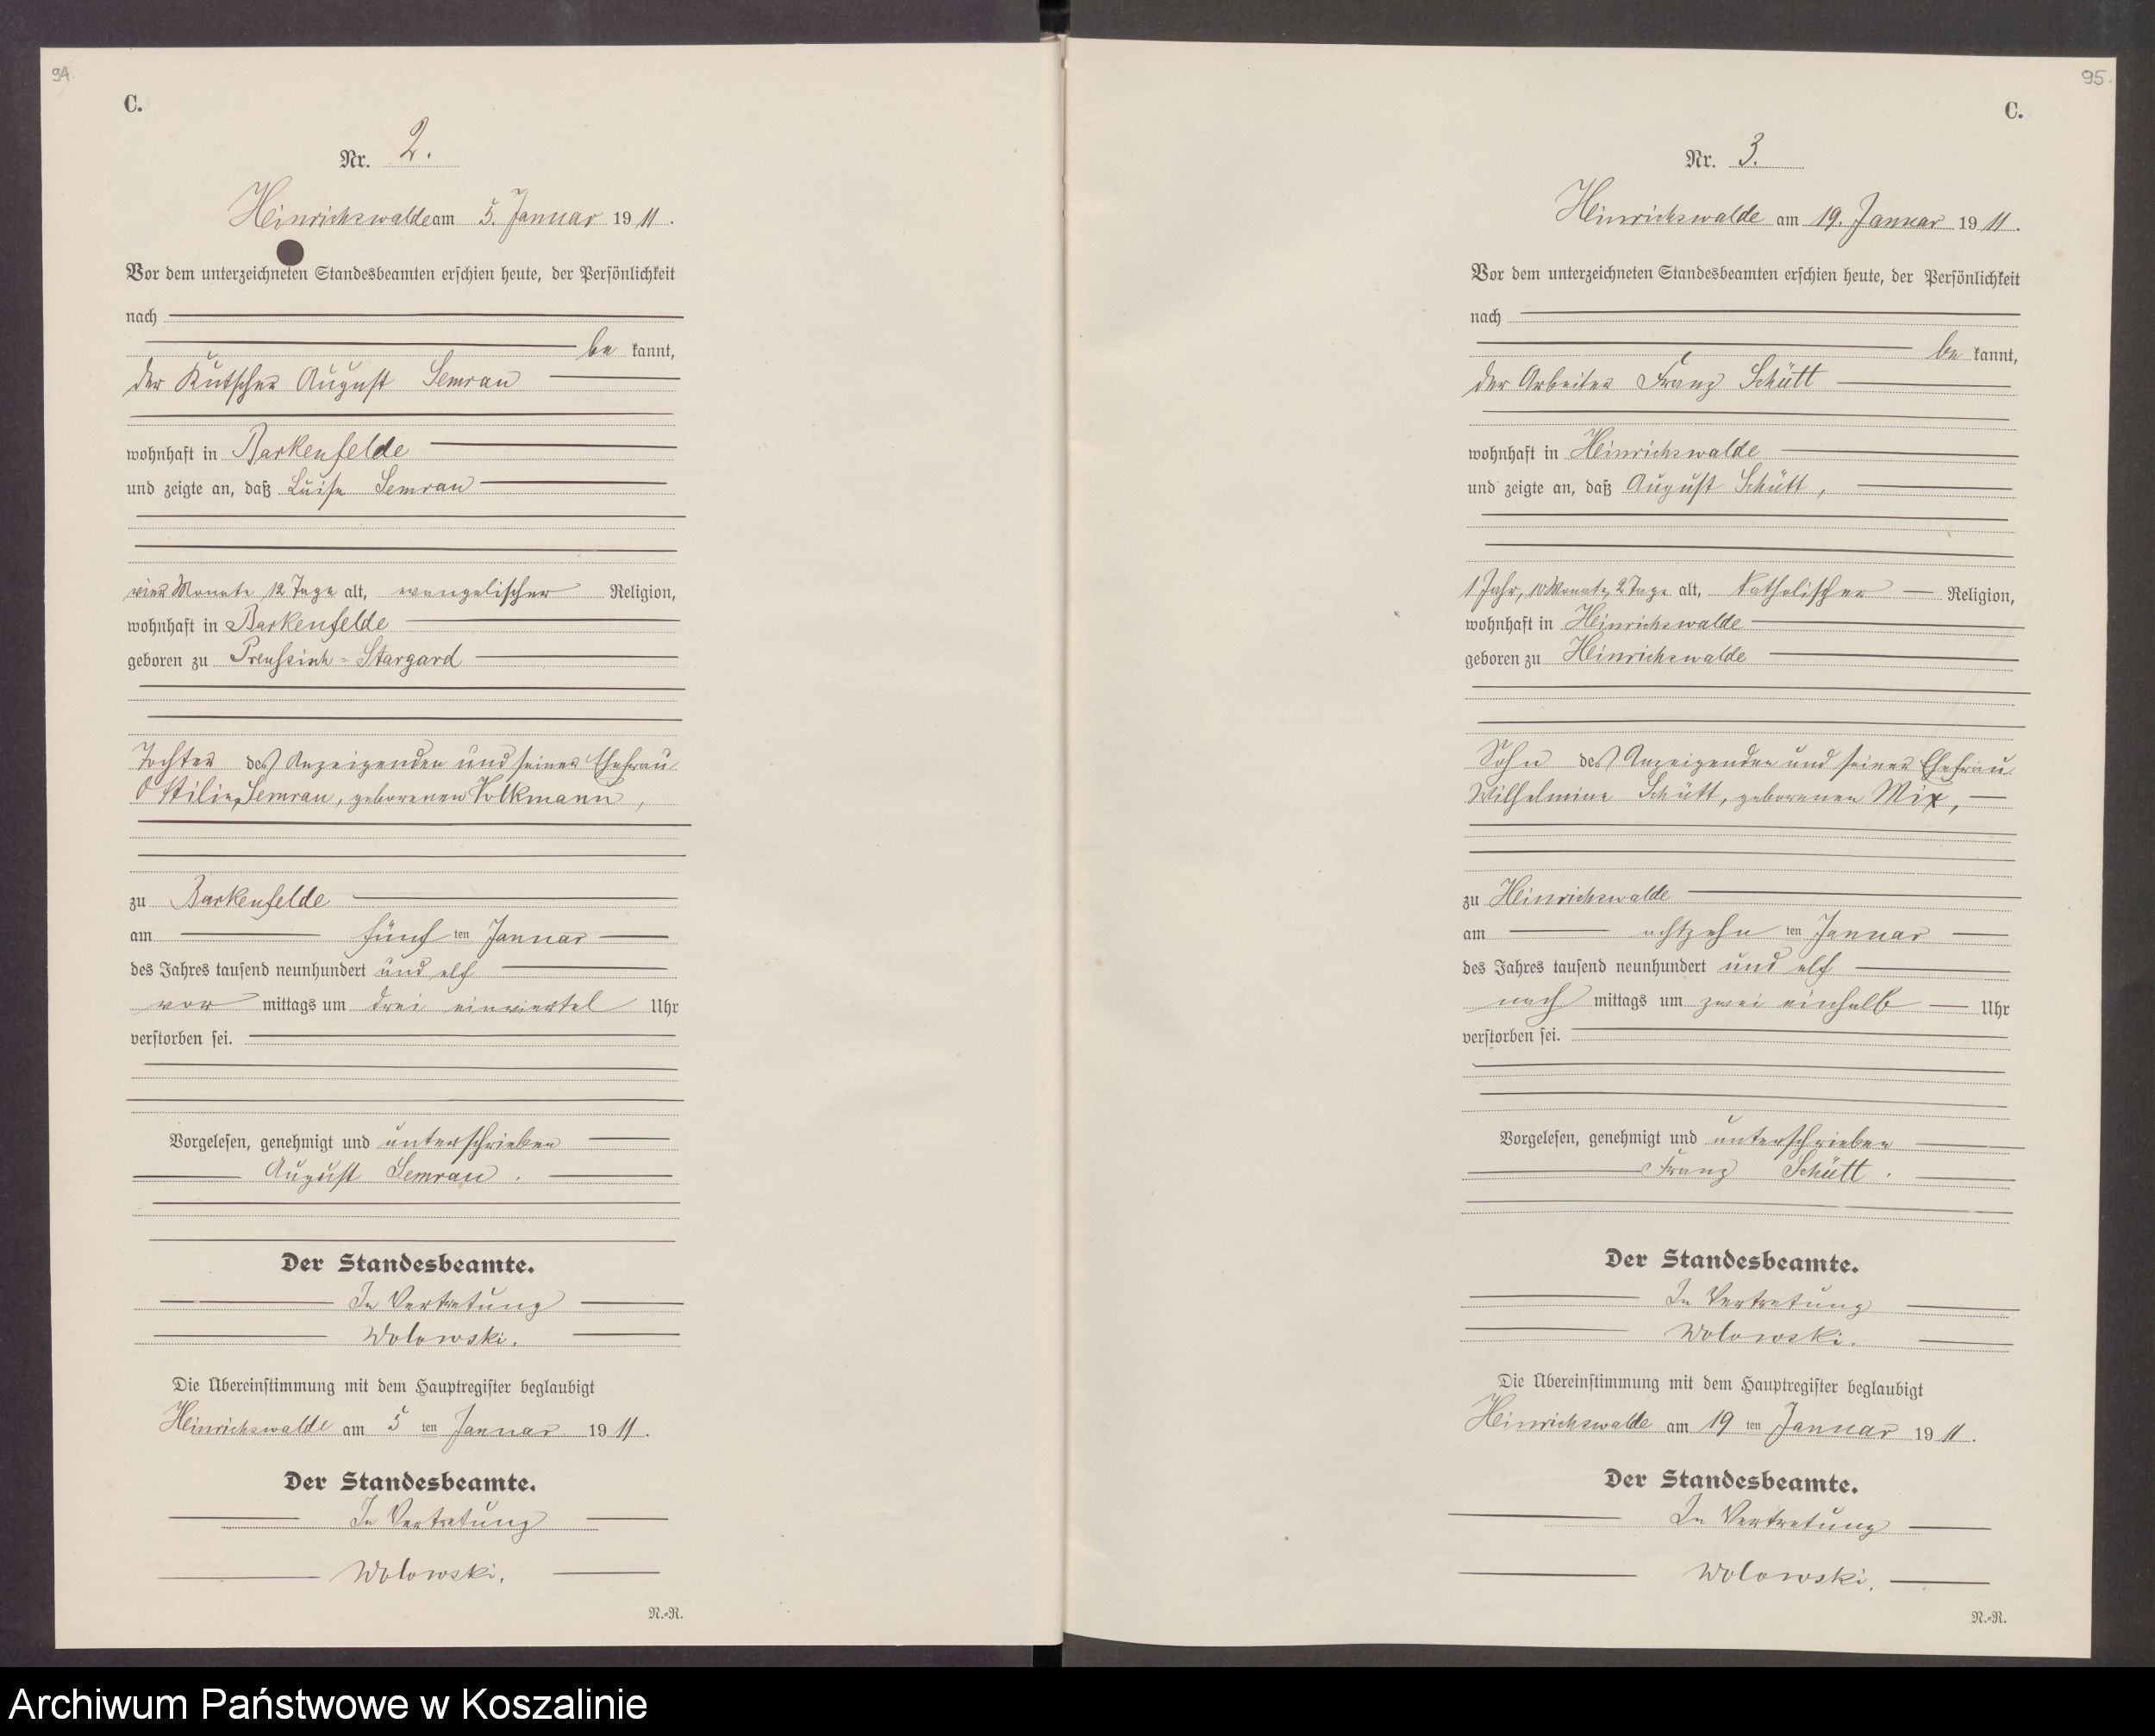 94.
C.
Nr. 2.
Heinrichswalde am 5. Januar 1911.
Vor dem unterzeichneten Standesbeamten erschien heute, der Persönlichkeit
nach
be kannt,
der Kutscher August Semrau
wohnhaft in Barkenfelde
und zeigte an, daß Luise Semrau
vier Monate 12 Tage alt, evangelischer Religion,
wohnhaft in Barkenfelde
geboren zu Preussisch-Stargard
Tochter des Anzeigenden und seiner Ehefrau
Ottilie Semrau, geborenen Volkmann,
zu Barkenfelde
am fünf ten Januar
des Jahres tausend neunhundert und elf
vor mittags um drei einviertel Uhr
verstorben sei.
Vorgelesen, genehmigt und unterschrieben
August Semrau.
Der Standesbeamte.
In Vertretung
Wolowski.
Die Übereinstimmung mit dem Hauptregister beglaubigt
Heinrichswalde am 5 ten Januar 1911.
Der Standesbeamte.
In Vertretung
Wolowski.
N.-R.
95.
C.
Nr. 3.
Heinrichswalde am 19. Januar 1911.
Vor dem unterzeichneten Standesbeamten erschien heute, der Persönlichkeit
nach
be kannt,
der Arbeiter Franz Schütt
wohnhaft in Heinrichswalde
und zeigte an, daß August Schütt,
1 Jahr, 10 Monate, 2 Tage alt, katholischer Religion,
wohnhaft in Heinrichswalde
geboren zu Heinrichswalde
Sohn des Anzeigenden und seiner Ehefrau
Wilhelmine Schütt, geborenen Mix,
zu Heinrichswalde
am achtzehn ten Januar
des Jahres tausend neunhundert und elf
nach mittags um zwei einhalb Uhr
verstorben sei.
Vorgelesen, genehmigt und unterschrieben
Franz Schütt.
Der Standesbeamte.
In Vertretung
Wolowski.
Die Übereinstimmung mit dem Hauptregister beglaubigt
Heinrichswalde am 19 ten Januar 1911.
Der Standesbeamte.
In Vertretung
Wolowski.
N.-R.
Archiwum Państwowe w Koszalinie